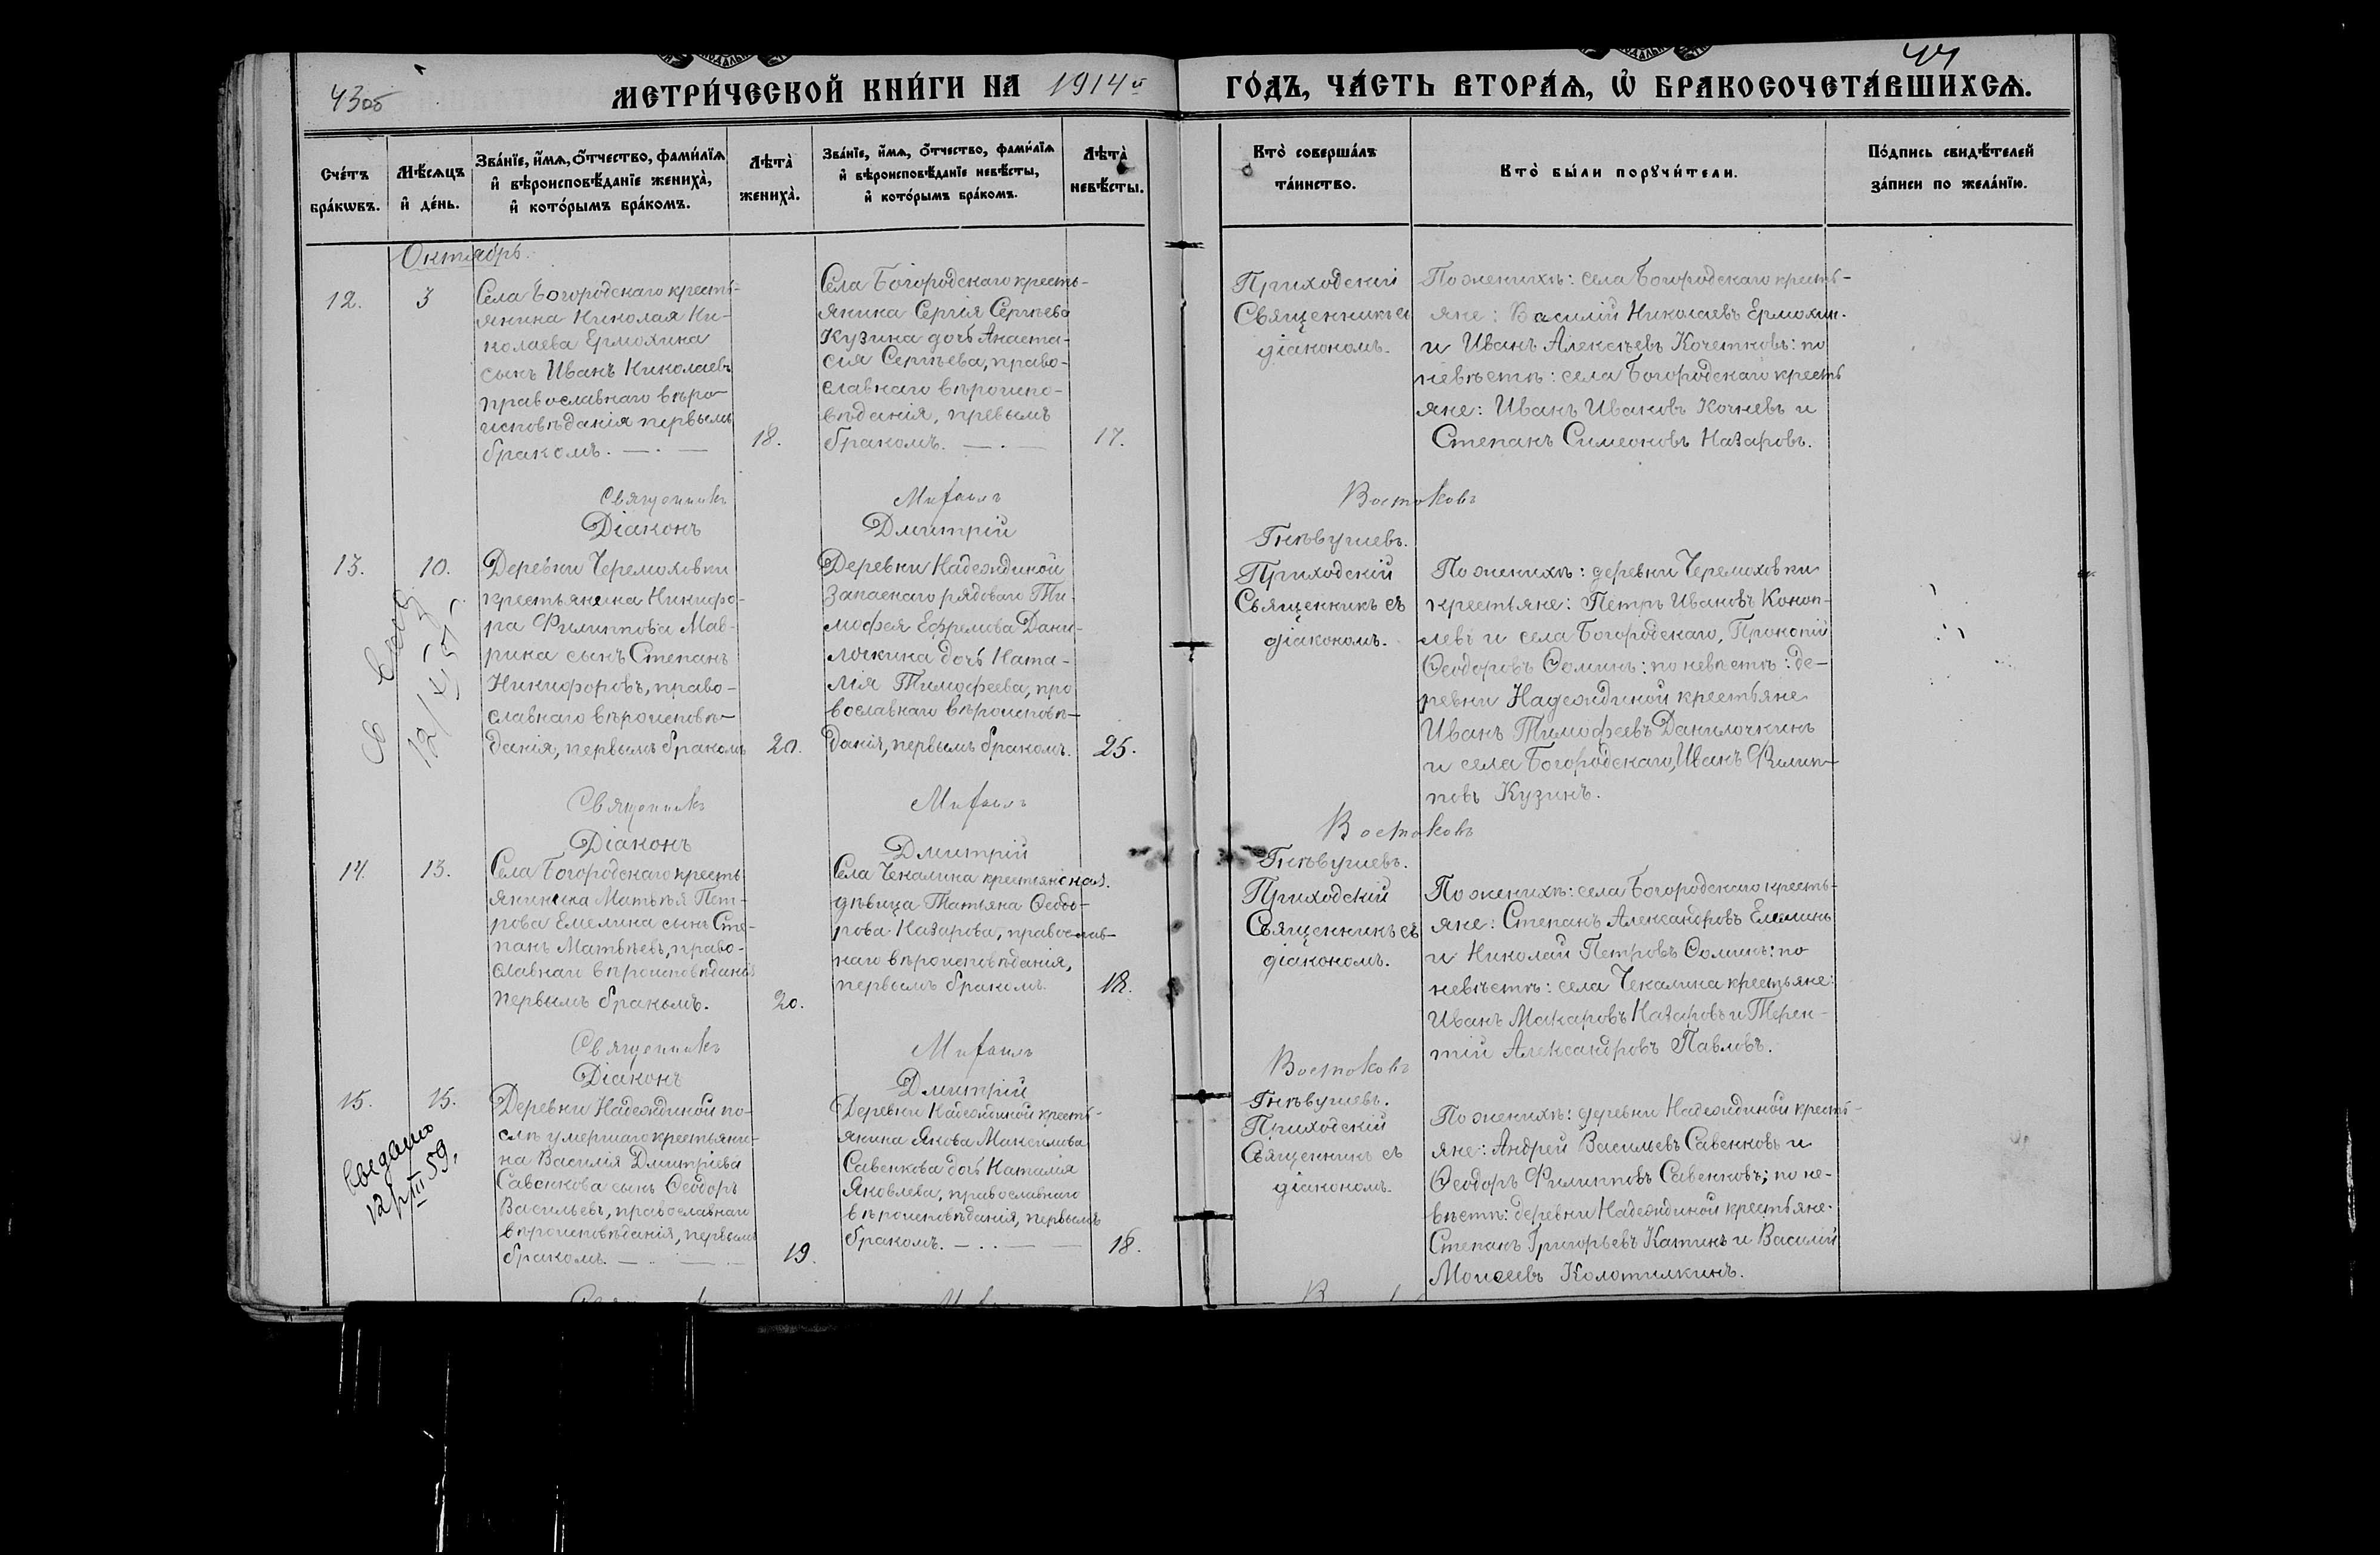 43об
44
МЕТРИ́ЧЕСКОЙ КНИ́ГИ НА 1914й ГО́ДЪ, ЧА́СТЬ ВТОРА́Ѧ, Ѡ҆ БРАКОСОЧЕТА́ВШИХСѦ.
Сче́тъ бра́кѡвъ.
Мѣ́сѧцъ и҆ де́нь.
Зва́нїе, и҆́мѧ, о҆́тчество, фами́лїѧ
и҆ вѣроисповѣ́данїе жениха̀,
и҆ кото́рымъ бра́комъ.
Лѣта̀ жениха̀.
Зва́нїе, и҆́мѧ, о҆́тчество, фами́лїѧ
и҆ вѣроисповѣ́данїе невѣ́сты,
и҆ кото́рымъ бра́комъ.
Лѣта̀ невѣ́сты.
Кто̀ соверша́лъ
та́инство.
Кто̀ бы́ли порꙋчи́тели.
По́дпись свидѣ́телей
за́писи по жела́нїю.
Октябрь.
12.
3
Села Богородскаго кресть-
янина Николая Ни-
колаева Ермохина
сынъ Иванъ Николаевъ
православнаго вѣро-
исповѣданія первымъ
бракомъ. — . —
18.
Села Богородскаго кресть-
янина Сергія Сергѣева
Кузина дочь Анаста-
сія Сергѣева, право-
славнаго вѣроиспо-
вѣданія, превымъ
бракомъ. — . —
17.
Приходскій
Священникъ съ
діакономъ.
По женихѣ: села Богородскаго кресть-
яне: Василій Николаевъ Ермохин.
и Иванъ Алексѣевъ Кочетковъ: по
невѣстѣ: села Богородскаго кресть
яне: Иванъ Ивановъ Кочневъ и
Степанъ Симеоновъ Назаровъ.
Священникъ Михаилъ Востоковъ
Діаконъ Дмитрій Гнѣвушевъ.
13.
10.
Деревни Черемоховки
крестьянина Никифо-
ра Филиппова Мав-
рина сынъ Степанъ
Никифоровъ, право-
славнаго вѣроисповѣ-
данія, первымъ бракомъ
20.
Деревни Надеждиной
запаснаго рядового Ти-
мофея Ефремова Дани-
лочкина дочь Ната-
лія Тимофеева, про
вославнаго вѣроисповѣ-
данія, первымъ бракомъ.
25.
Приходскій
Священникъ съ
діакономъ.
По женихѣ: деревни Черемоховки
крестьяне: Петръ Ивановъ Коноп-
левъ и села Богородскаго, Прокопій
Ѳеодоровъ Ѳоминъ: по невѣстѣ: де-
ревни Надеждиной крестьяне
Иванъ Тимофеевъ Данилочкинъ
и села Богородскаго, Иванъ Филип-
повъ Кузинъ.
Священникъ Михаилъ Востоковъ
Діаконъ Дмитрій Гнѣвушевъ.
14.
13.
Села Богородскаго кресть
янина Матвѣя Пет-
рова Емелина сынъ Сте-
панъ Матвѣевъ, право-
славнаго вѣроисповѣданія
первымъ бракомъ.
20.
Села Чекалина крестьянская
дѣвица Татьяна Ѳеодо-
рова Назарова, православ-
наго вѣроисповѣданія,
первымъ бракомъ.
18.
Приходскій
Священникъ съ
діакономъ.
По женихѣ: села Богородскаго кресть-
яне: Степанъ Александровъ Емелинъ
и Николай Петровъ Ѳоминъ: по
невѣстѣ: села Чекалина крестьяне:
Иванъ Макаровъ Назаровъ и Терен-
тій Александровъ Павловъ.
Священникъ Михаилъ Востоковъ
Діаконъ Дмитрій Гнѣвушевъ.
15.
15.
12/III 59.
Деревни Надеждиной по-
слѣ умершаго крестьяни-
на Василія Дмитріева
Савенкова сынъ Ѳеодоръ
Васильевъ, православнаго
вѣроисповѣданія, первымъ
бракомъ. — . — . —
19.
Деревни Надеждиной кресть-
янина Якова Максимова
Савенкова дочь Наталія
Яковлева, православнаго
вѣроисповѣданія, первымъ
бракомъ. — . . — —
18.
Приходскій
Священникъ съ
діакономъ.
По женихѣ: деревни Надеждиной кресть-
яне: Андрей Васильевъ Савенковъ и
Ѳеодоръ Филипповъ Савенковъ; по не-
вѣстѣ: деревни Надеждиной крестьяне.
Степанъ Григорьевъ Катинъ и Василій
Моисеевъ Колотилкинъ.